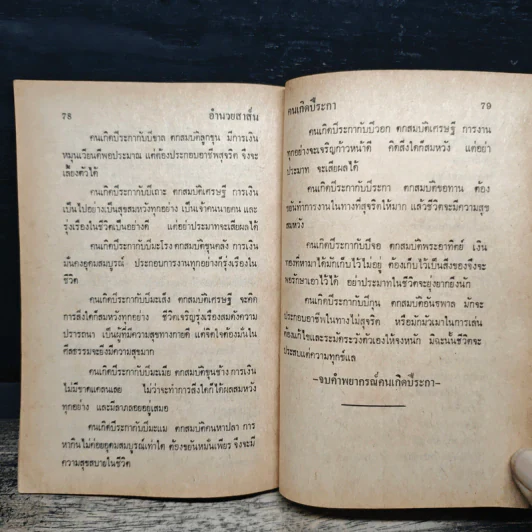 78
อำนวยสาส์น
คนเกิดปีระกากับปีขาล ตกสมบัติลูกขุน มีการเงิน
หมุนเวียนดีพอประมาณ แต่ต้องประกอบอาชีพสุจริต จึงจะ
เลี้ยงตัวได้
คนเกิดปีระกากับปีเถาะ ตกสมบัติเศรษฐี การเงิน
เป็นไปอย่างเป็นสุขสมหวังทุกอย่าง เป็นเจ้าคนนายคน และ
รุ่งเรืองในชีวิตเป็นอย่างดี แต่อย่าประมาทจะเสียผลได้
คนเกิดปีระกากับปีมะโรง ตกสมบัติขุนคลัง การเงิน
มั่นคงอุดมสมบูรณ์ ประกอบการงานทุกอย่างก็รุ่งเรืองใน
ชีวิต
คนเกิดปีระกากับปีมะเส็ง ตกสมบัติเศรษฐี จะคิด
การสิ่งใดก็สมหวังทุกอย่าง ชีวิตเจริญรุ่งเรืองสมดังความ
ปรารถนา เป็นผู้ที่มีความสุขทางกายดี แต่จิตใจต้องมั่นใน
ศีลธรรมจะยิ่งมีความสุขมาก
คนเกิดปีระกากับปีมะเมีย ตกสมบัติขุนช้าง การเงิน
ไม่มีขาดแคลนเลย ไม่ว่าจะทำการสิ่งใดก็ได้ผลสมหวัง
ทุกอย่าง และมีลาภลอยอยู่เสมอ
คนเกิดปีระกากับปีมะแม ตกสมบัติคนหาปลา การ
หากินไม่ค่อยอุดมสมบูรณ์เท่าใด ต้องขยันหมั่นเพียร จึงจะมี
ความสุขสบายในชีวิต
คนเกิดปีระกา
79
คนเกิดปีระกากับปีวอก ตกสมบัติเศรษฐี การงาน
ทุกอย่างจะเจริญก้าวหน้าดี คิดสิ่งใดก็สมหวัง แต่อย่า
ประมาท จะเสียผลได้
คนเกิดปีระกากับปีระกา ตกสมบัติขอทาน ต้อง
ขยันทำการงานในทางที่สุจริตให้มาก แล้วชีวิตจะมีความสุข
สมหวัง
คนเกิดปีระกากับปีจอ ตกสมบัติพระอาทิตย์ เงิน
ทองที่หามาได้มักเก็บไว้ไม่อยู่ ต้องเก็บไว้เป็นสิ่งของจึงจะ
พอรักษาเอาไว้ได้ อย่าประมาทในชีวิตจะยุ่งยากยิ่งนัก
คนเกิดปีระกากับปีกุน ตกสมบัติอันธพาล มักจะ
ประกอบอาชีพในทางไม่สุจริต หรือมักมัวเมาในการเล่น
ต้องแก้ไขและระมัดระวังตัวเองให้จงหนัก มิฉะนั้นชีวิตจะ
ประสบแต่ความทุกข์แล
-จบคำพยากรณ์คนเกิดปีระกา-